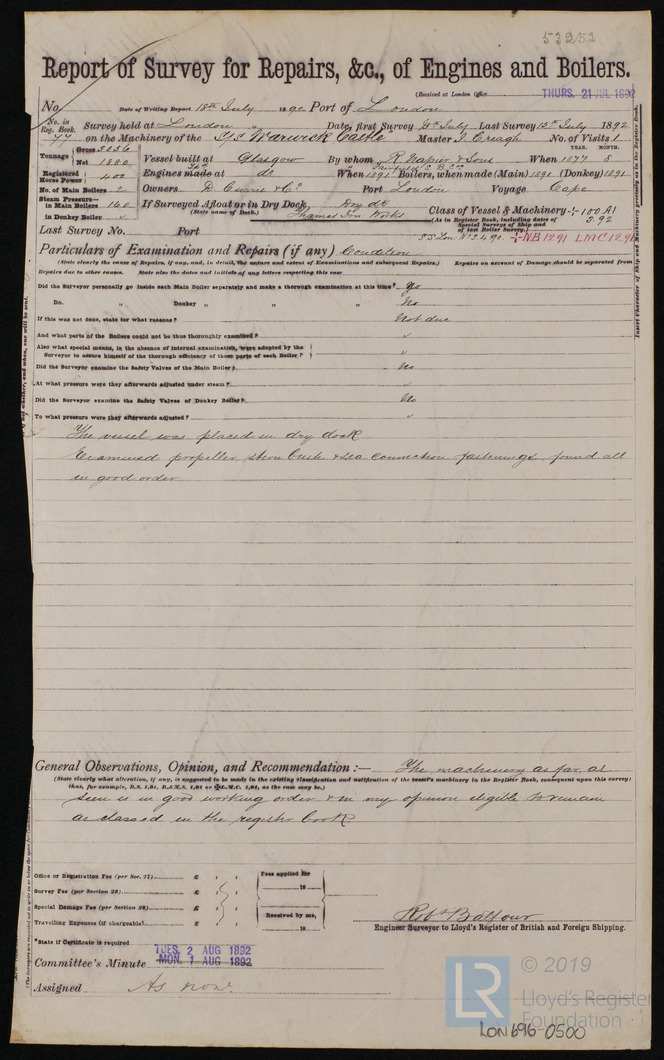 53253
Report of Survey for Repairs, &c., of Engines and Boilers.
(Received at London Office THURS. 21 JUL 1892
No. Date of Writing Report 18th July 1892 Port of London
No. in Reg. Book. Survey held at London Date, first Survey July Last Survey 15th July 1892
77 on the Machinery of the S/S Warwick Castle Master J. Creagh No. of Visits 1
Tonnage Gross 3056 Net 1880 Vessel built at Glasgow By whom R. Napier & Sons When 1877 YEAR. 8 MONTH.
Registered Horse Power 400 Engines made at do When 1891 Boilers, when made (Main) 1891 (Donkey) 1891
No. of Main Boilers 2 Owners D. Currie & Co. Port London Voyage Cape
Steam Pressure— in Main Boilers 160 If Surveyed Afloat or in Dry Dock Dry dk
in Donkey Boiler ✓ (State name of Dock.) Thames Iron Works
Class of Vessel & Machinery ✠100 A1
(As in Register Book, including dates of Special Surveys of Ship and of last Boiler Survey.)
Last Survey No. Port
SS Lon. No 3.4.90. ✠NB 12 91 LMC 12.91
Particulars of Examination and Repairs (if any) Condition
(State clearly the cause of Repairs, if any, and, in detail, the nature and extent of Examinations and subsequent Repairs.) Repairs on account of Damage should be separated from
Repairs due to other causes. State also the dates and initials of any letters respecting this case
Did the Surveyor personally go inside each Main Boiler separately and make a thorough examination at this time? No
Do. „ Donkey „ „ „ No
If this was not done, state for what reasons? Not due
And what parts of the Boilers could not be thus thoroughly examined? ✓
Also what special means, in the absence of internal examination, were adopted by the
Surveyor to assure himself of the thorough efficiency of those parts of each Boiler? ✓
Did the Surveyor examine the Safety Valves of the Main Boiler? No
At what pressure were they afterwards adjusted under steam? ✓
Did the Surveyor examine the Safety Valves of Donkey Boiler? No
To what pressure were they afterwards adjusted? ✓
The vessel was placed in dry dock
Examined propeller, stern bush & sea connection fastenings found all
in good order
General Observations, Opinion, and Recommendation :— The machinery as far as
(State clearly what alteration, if any, is suggested to be made in the existing classification and notification of the vessel's machinery in the Register Book, consequent upon this survey;
thus, for example, B.S. 1,91, B.&M.S. 1,91 or L.M.C. 1,91, as the case may be.)
seen is in good working order & in my opinion eligible to remain
as classed in the register book
Office or Registration Fee (per Sec. 27) £ : :
Survey Fee (per Section 28) £ : :
Special Damage Fee (per Section 28) £ : :
Travelling Expenses (if chargeable) £ : :
Fees applied for
18
Received by me,
18
Robt Balfour
Engineer Surveyor to Lloyd's Register of British and Foreign Shipping.
*State if Certificate is required
TUES. 2 AUG 1892
Committee's Minute MON. 1 AUG 1892
Assigned As now
LR © 2019
Lloyd's Register
Foundation
LON696-0500
Insert Character of Ship and Machinery precisely as in the Register Book.